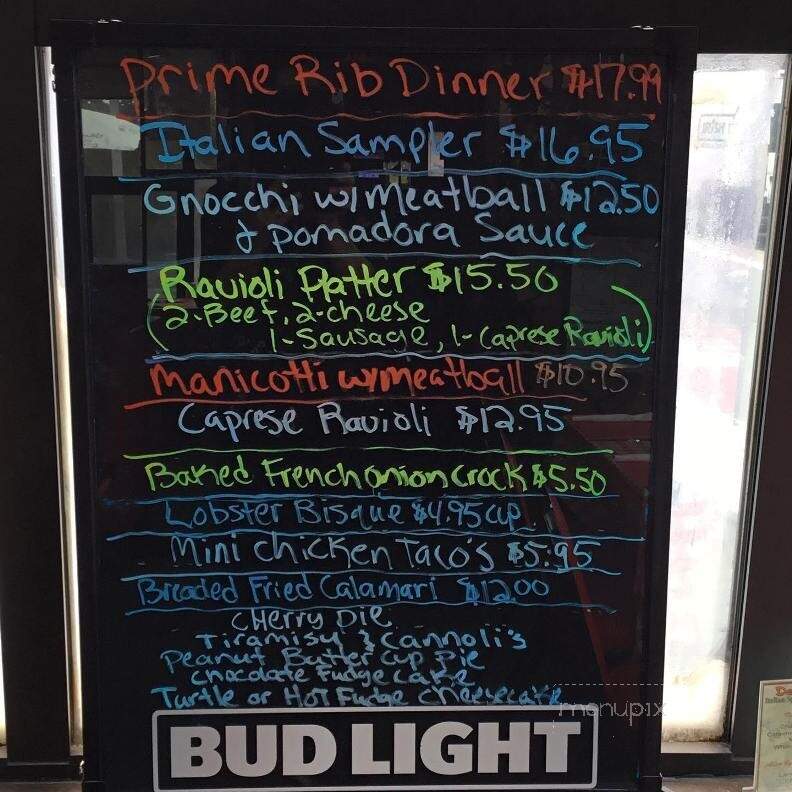 Prime Rib Dinner $17.99
Italian Sampler $16.95
Gnocchi w/meatball $12.50
& pomadora Sauce
Ravioli Platter $15.50
(2-Beef, 2-cheese
1-Sausage, 1-Caprese Ravioli)
Manicotti w/meatball $10.95
Caprese Ravioli $12.95
Baked French onion Crock $5.50
Lobster Bisque $4.95 cup
Mini chicken Taco's $5.95
Breaded Fried Calamari $12.00
Cherry pie
Tiramisu & Cannoli's
Peanut Butter Cup Pie
chocolate Fudge cake
Turtle or Hot Fudge cheesecake
menupix
BUD LIGHT